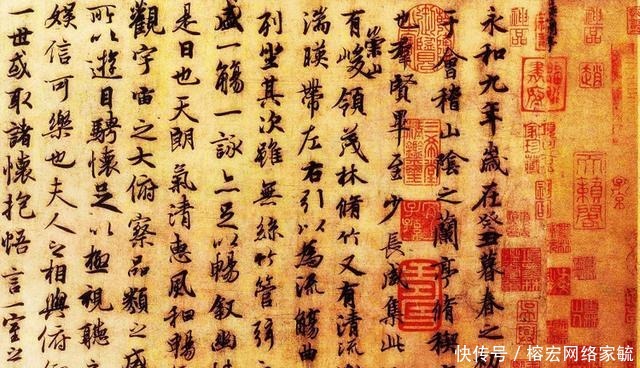 永和九年歲在癸丑暮春之初
于會稽山陰之蘭亭脩禊
也羣賢畢至少長咸集此
有崇山峻領茂林脩竹又有清流
湍暎帶左右引以為流觴曲
列坐其次雖無絲竹管弦
盛一觴一詠亦足以暢敘幽情
是日也天朗氣清惠風和暢
觀宇宙之大俯察品類之盛
所以遊目騁懷足以極視聽之
娛信可樂也夫人之相與俯
一世或取諸懷抱悟言一室之
快传号 / 榕宏网络家毓